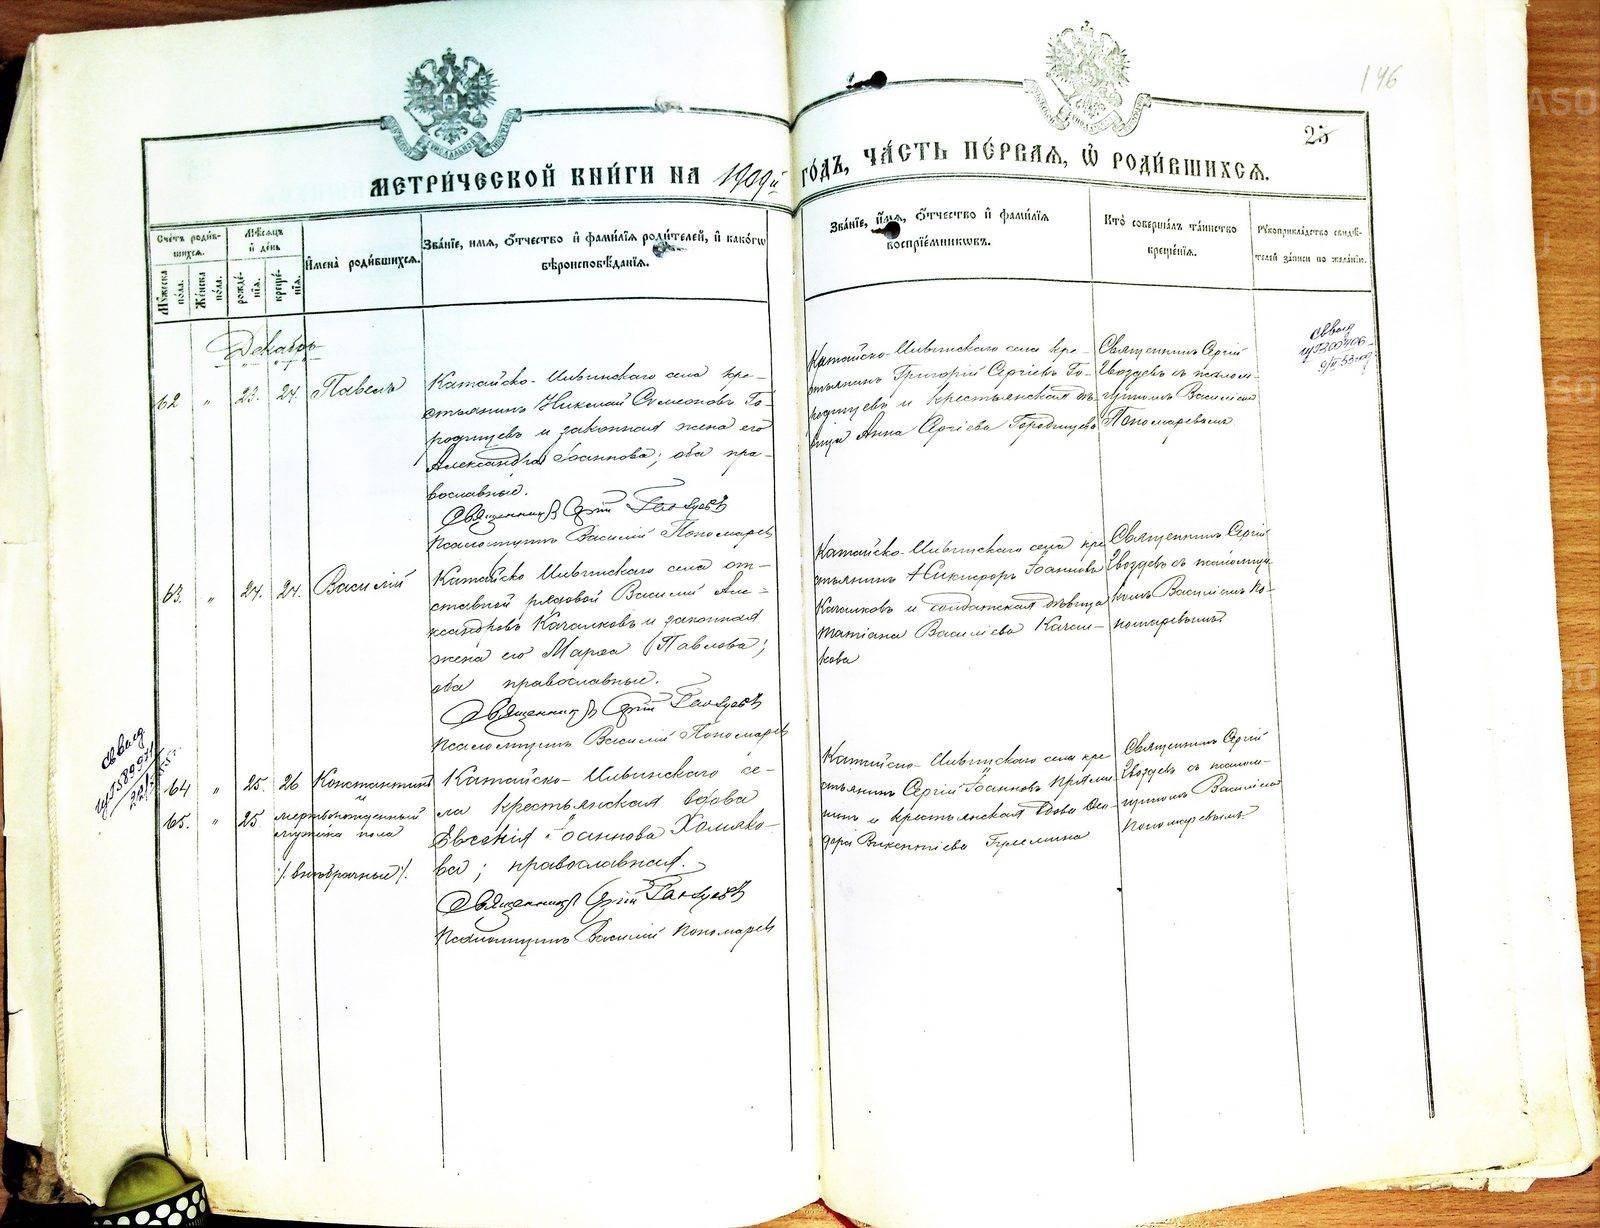 146
25
МЕТРИ́ЧЕСКОЙ КНИ́ГИ НА 1909й ГО́ДЪ, ЧА́СТЬ ПЕ́РВАЯ, Ѡ РОДИ́ВШИХСЯ.
Сче́тъ роди́в-
шихся.
Му́жеска по́ла.
Же́нска по́ла.
Мѣ́сяцъ
и҆ де́нь
рожде́-
нія.
креще́-
нія.
И҆мена̀ роди́вшихся.
Зва́ніе, имя, ѻ҆́тчество и҆ фами́лія роди́телей, и҆ како́гѡ
вѣроисповѣ́данія.
Зва́ніе, и҆́мя, ѻ҆́тчество и҆ фами́лія
воспріе́мникѡвъ.
Кто̀ соверша́лъ та́инство
креще́нія.
Рꙋкоприкла́дство свидѣ́-
телей за́писи по жела́нію.
Декабрь
62 " 23. 24. Павелъ
Катайско-Ильинскаго села кре-
стьянинъ Николай Сѵмеоновъ Го-
родищевъ и законная жена его
Александра Іоаннова; оба пра-
вославные.
Священникъ Сергій Гвоздевъ
Псаломщикъ Василій Пономаревъ
села кре-
стьянинъ Григорій Сергіевъ Го-
родищевъ и крестьянская дѣ-
вица Анна Сергіева Городищева
Священникъ Сергій
Гвоздевъ съ псалом-
щикомъ Василіемъ
Пономаревымъ
63. " 24. 24. Василій
села от-
ставной рядовой Василій Але-
ксандровъ Качалковъ и законная
жена его Марѳа Павлова;
оба православные.
Священникъ Сергій Гвоздевъ
Псаломщикъ Василій Пономаревъ
села кре-
стьянинъ Никифоръ Іоанновъ
Качалковъ и солдатская дѣвица
Татіана Василіева Качал-
кова
Священникъ Сергій
Гвоздевъ съ псаломщи-
комъ Василіемъ По-
номаревымъ
64 " 25. 26 Константинъ
и
65. " 25 мертворожденный
мужска пола
/. внѣбрачные ./.
се-
ла крестьянская вдова
Евгенія Іоаннова Холмако-
ва; православная.
Священникъ Сергій Гвоздевъ
Псаломщикъ Василій Пономаревъ
села кре-
стьянинъ Сергій Іоанновъ
и крестьянская вдова
Викентіева
Священникъ Сергій
Гвоздевъ съ псалом-
щикомъ Василіемъ
Пономаревымъ